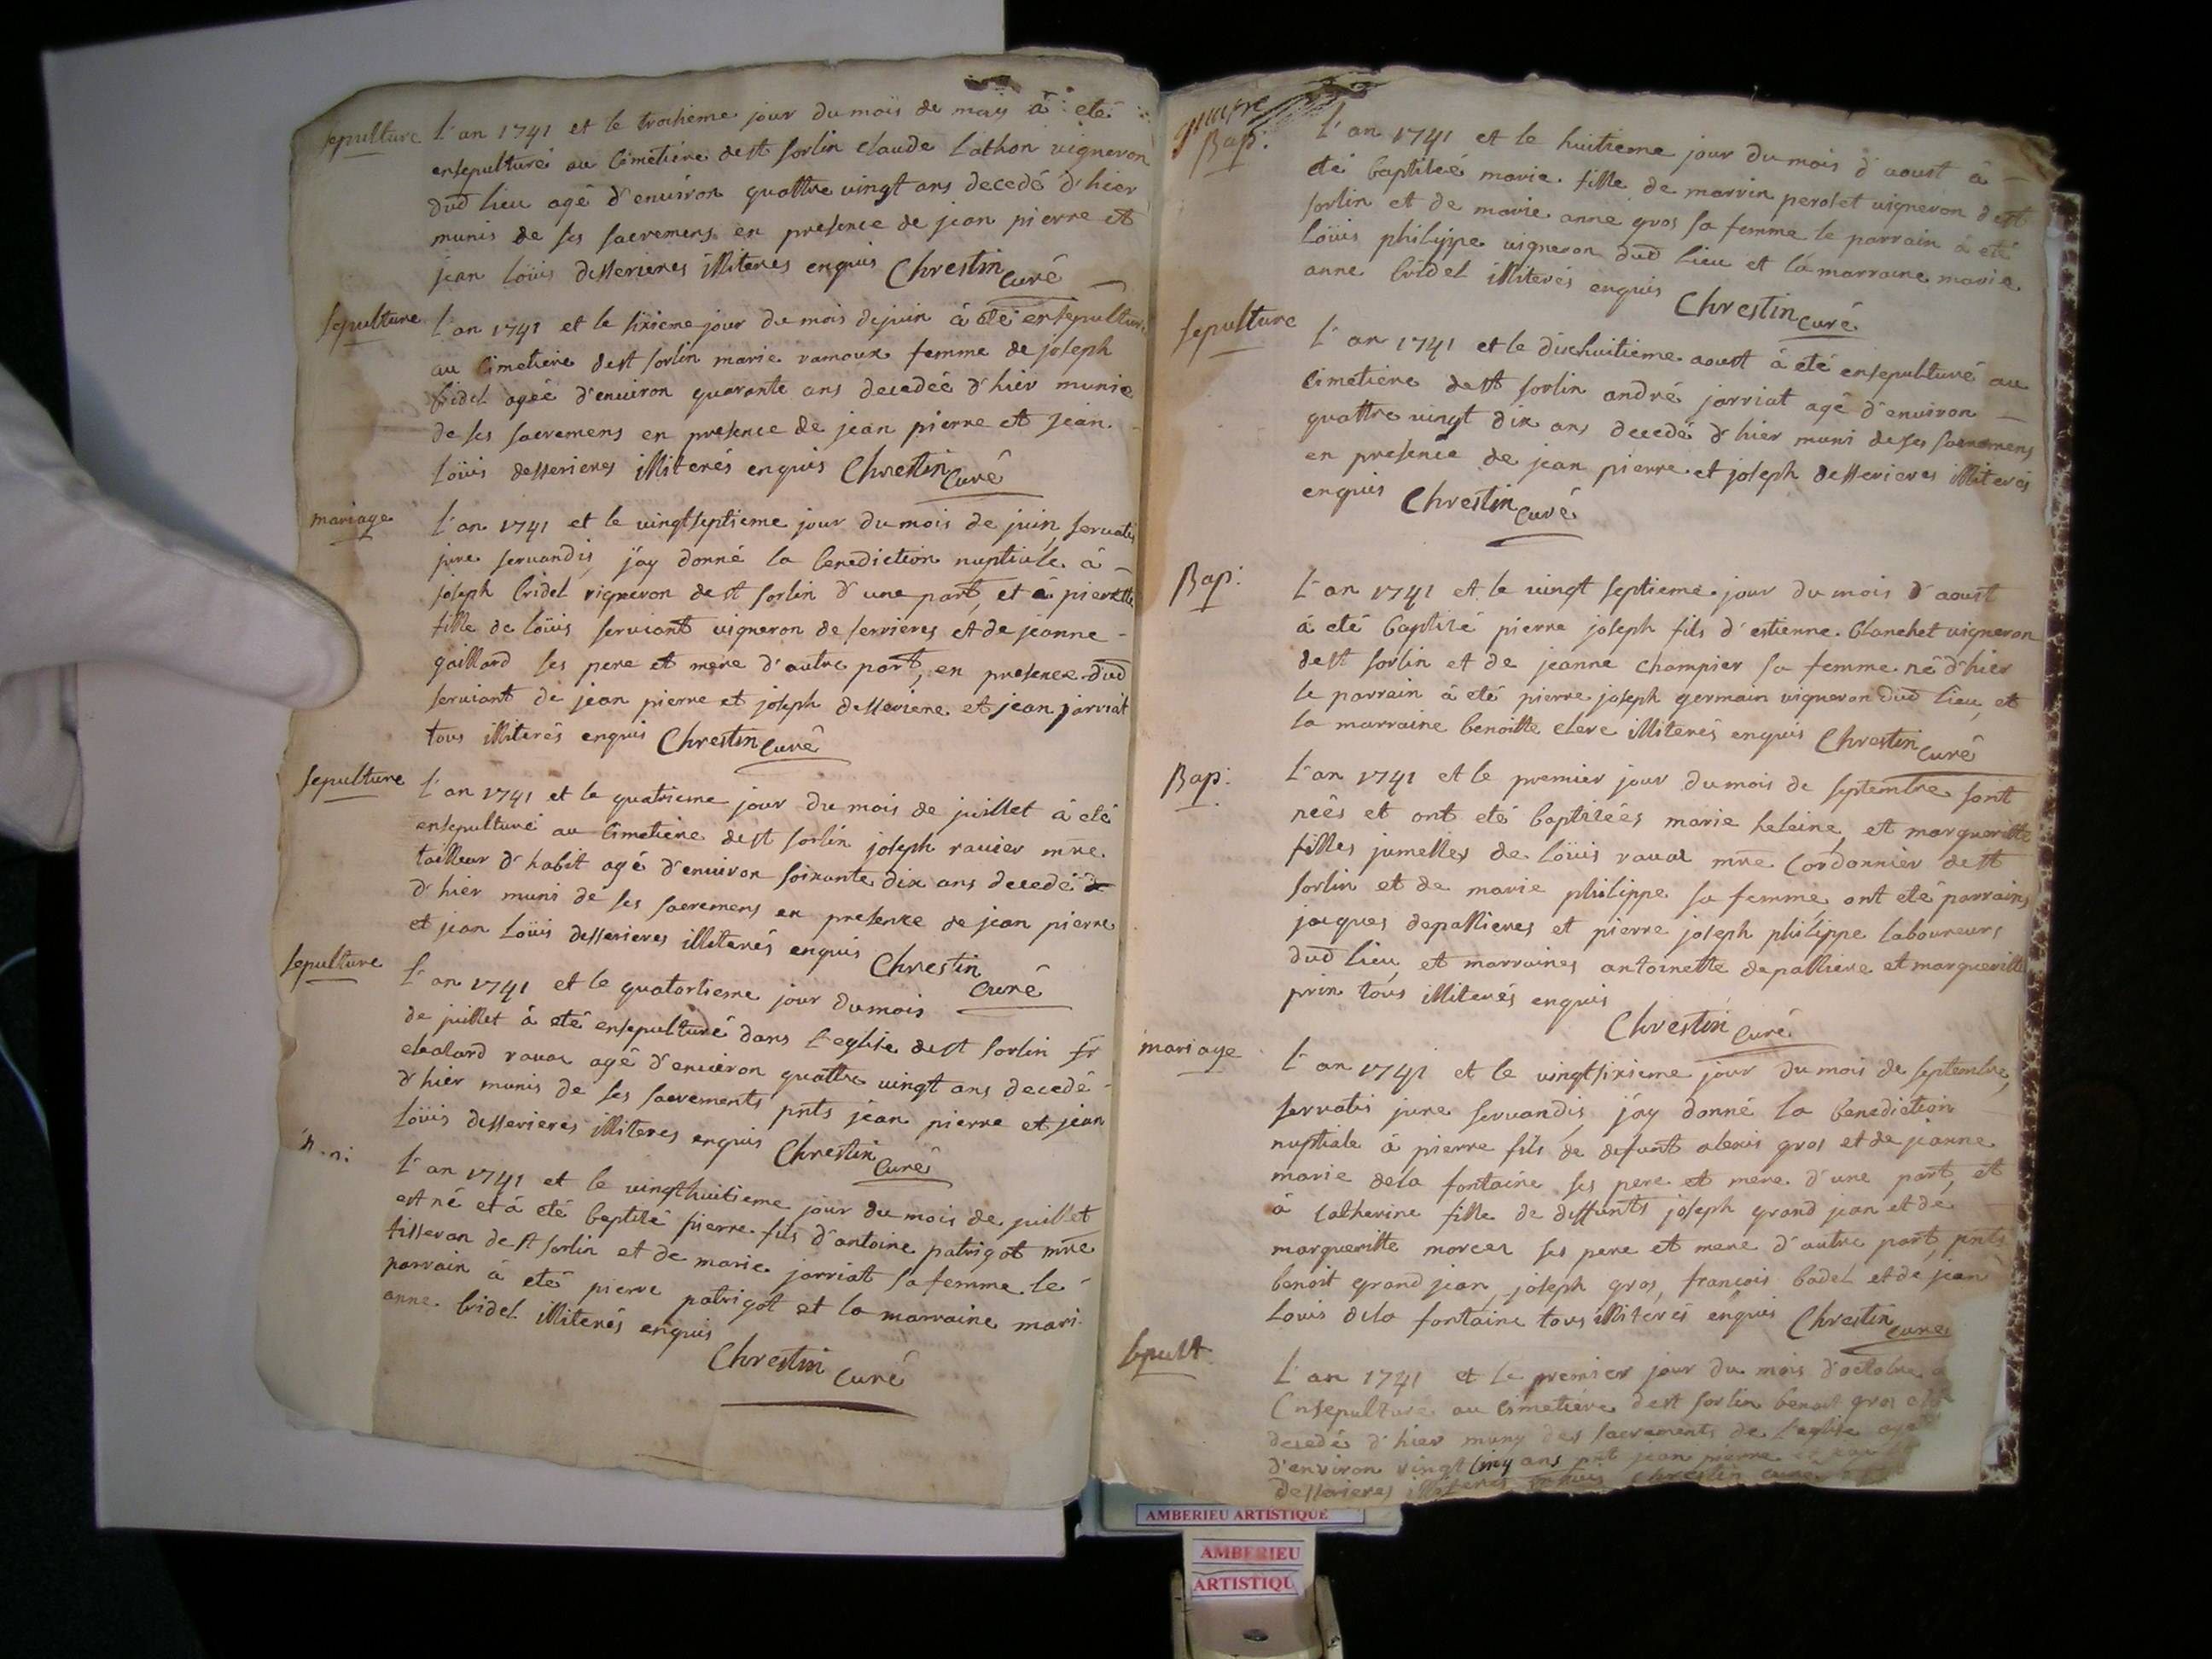 sepulture
L'an 1741 et le troisieme jour du mois de may à eté
ensepulturé au Cimetiere de st sorlin claude Lathon vigneron
dud lieu agé d'environ quattre vingt ans decedé d'hier
munis de ses sacremens en presence de jean pierre et
jean Loüis desserieres illiterés enquis Chrestin curé
sepulture
L'an 1741 et le sixieme jour du mois de juin à eté ensepulturé
au Cimetiere de st sorlin marie ramoux femme de joseph
bridel ageé d'environ quarante ans decedeé d'hier munie
de ses sacremens en presence de jean pierre et jean
Loüis desserieres illiterés enquis Chrestin Curé
mariage
L'an 1741 et le vingtseptieme jour du mois de juin, servatis
jure servandis, j'ay donné la benediction nuptiale à
joseph bridel vigneron de st sorlin d'une part, et à pierrette
fille de loüis serviant vigneron de serrieres et de jeanne
gaillard ses pere et mere d'autre part, en presence dud
serviant de jean pierre et joseph desseriere et jean jarriat
tous illiterés enquis Chrestin curé
sepulture
L'an 1741 et le quatrieme jour du mois de juillet à eté
ensepulturé au Cimetiere de st sorlin joseph ravier mre
tailleur d'habit agé d'environ soixante dix ans decedé
d'hier muni de ses sacremens en presence de jean pierre
et jean Loüis desserieres illiterés enquis Chrestin curé
sepulture
L'an 1741 et le quatortieme jour du mois
de juillet à eté ensepulturé dans l'eglise de st sorlin sr
ravax agé d'environ quattre vingt ans decedé
d'hier munis de ses sacrements pnts jean pierre et jean
Loüis desserieres illiteres enquis Chrestin Curé
L'an 1741 et le vingthuitieme jour du mois de juillet
est né et à eté baptisé pierre fils d'antoine patrigot mre
tisseran de st sorlin et de marie jarriat sa femme le
parrain à eté pierre patrigot et la marraine mari
anne bridel illiterés enquis
Chrestin Curé
Bap:
L'an 1741 et le huitieme jour du mois d'aoust à
eté baptiseé marie fille de marvin perolet vigneron de st
sorlin et de marie anne gros sa femme le parrain à eté
Loüis philippe vigneron dud lieu et la marraine marie
anne bridel illiterés enquis Chrestin curé
sepulture
L'an 1741 et le dixhuitieme aoust à eté ensepulturé au
Cimetiere de st sorlin andré jarriat agé d'environ
quattre vingt dix ans decedé d'hier muni de ses sacremens
en presence de jean pierre et joseph desserieres illiterés
enquis Chrestin curé
Bap:
L'an 1741 et le vingt septieme jour du mois d'aoust
à eté baptisé pierre joseph fils d'estienne blanchet vigneron
de st sorlin et de jeanne champier sa femme né d'hier
le parrain à eté pierre joseph germain vigneron dud lieu, et
la marraine benoitte clere illiterés enquis Chrestin curé
Bap:
L'an 1741 et le premier jour du mois de septembre sont
neés et ont eté baptiseés marie helaine, et margueritte
filles jumelles de Loüis ravax mre Cordonnier de st
sorlin et de marie philippe sa femme ont eté parrains
jacques depallieres et pierre joseph philippe laboureurs
dud lieu, et marraines antoinette depalliere et margueritte
prin tous illiterés enquis
Chrestin curé
mariage
L'an 1741 et le vingtsixieme jour du mois de septembre,
servatis jure servandis, j'ay donné la benediction
nuptiale à pierre fils de defunt alexis gros et de jeanne
marie dela fontaine ses pere et mere d'une part, et
à Catherine fille de deffunts joseph grand jean et de
margueritte morcel ses pere et mere d'autre part, pnts
benoit grand jean, joseph gros, françois badel et de jean
Louis dela fontaine tous illiterés enquis Chrestin curé
sepult.
L'an 1741 et le premier jour du mois d'octobre a
Ensepulturé au Cimetiére de st sorlin benoit gros
decedé d'hier muny des sacrements de l'eglise agé
d'environ vingt cinq ans pnt jean pierre
Desserieres illiteres enquis Chrestin curé
AMBERIEU ARTISTIQUE
AMBERIEU
ARTISTIQU